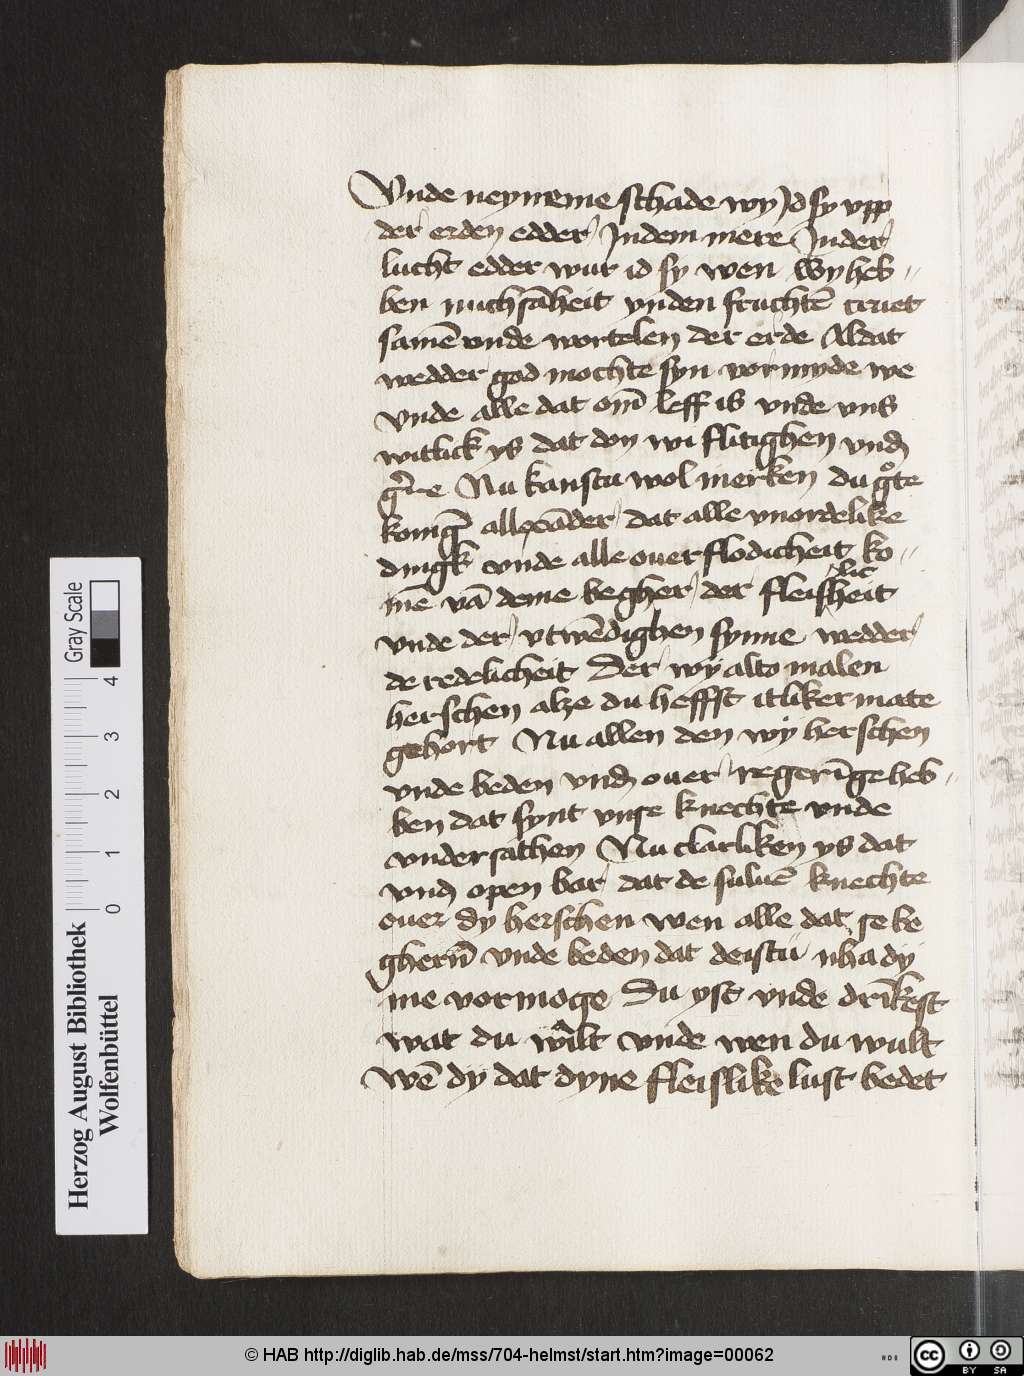 Vnde neyneme schade wy Jd sy vpp
der erden edder Jndem mere Jnder
lucht edder wur id sy wen wy heb-
ben nuchsāheit ynden fruchtē cruet
samē vnde wortelen der erde Aldat
wedder god mochte syn vormyde we
vnde alle dat om̄ leff is vnde vns
witlick ys dat don wi flitighen vnd
gͤrne Nu kanstu wol merken du gͦte
konigk allexāder dat alle vnordelike
dingk vnde alle ouerflodicheit ko-
mē vā deme begher der fleislicheit
vnde der vtwēdighen synne wedder
de redelicheit Der wy alto malen
herschen alze du heffst itliker mate
gehort Nu allen den wy herschen
vnde beden vnd ouer regerīge heb-
ben dat synt vnse knechte vnde
vndersathen Nu clarliken ys dat
vnd open bar dat de suluē knechte
ouer dy herschen wen alle dat se be
ghern̄ vnde beden dat deistu nha dy
me vormoge Du yst vnde drīkest
wat du wult vnde wen du wult
wē dy dat dyne fleislike lust bedet
Gray Scale
0 1 2 3 4
Herzog August Bibliothek
Wolfenbüttel
© HAB http://diglib.hab.de/mss/704-helmst/start.htm?image=00062
cc BY SA